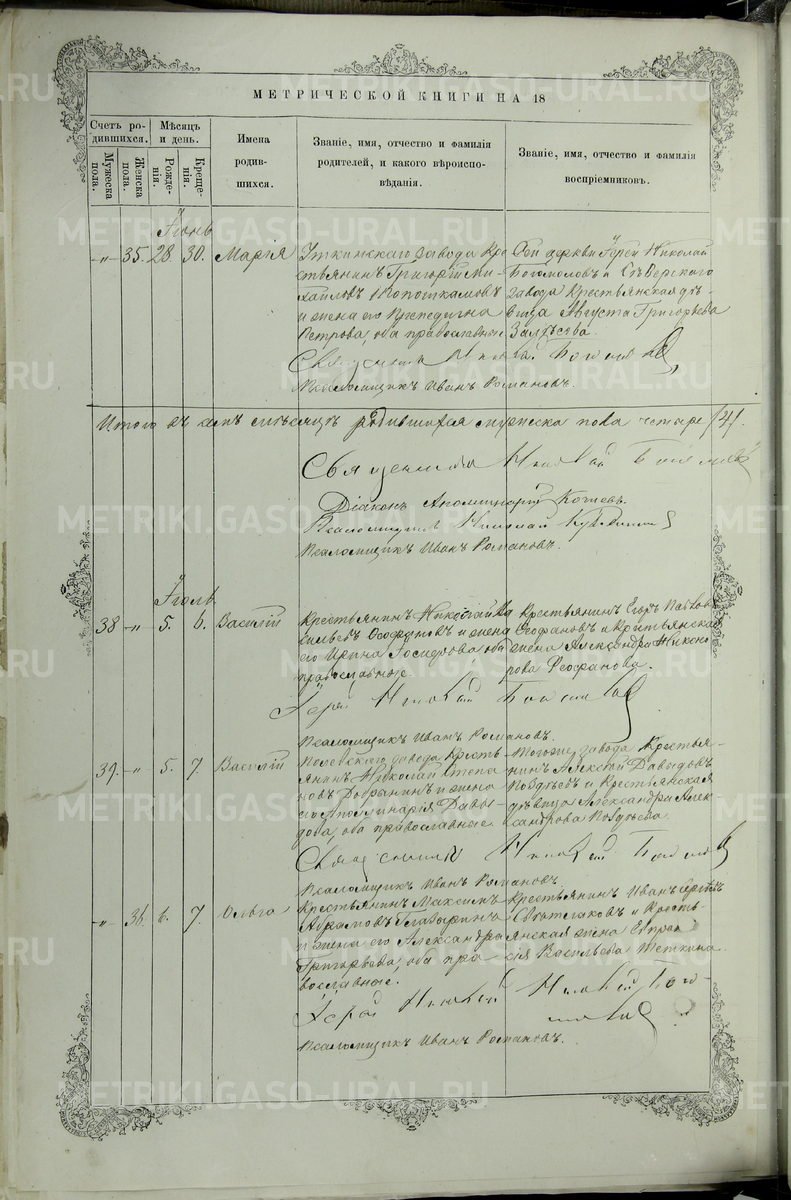 МЕТРИЧЕСКОЙ КНИГИ НА 18
Счетъ ро-
дившихся.
Мѣсяцъ
и день.
Мужеска
пола.
Женска
пола.
Рожде-
нія.
Креще-
нія.
Имена
родив-
шихся.
Званіе, имя, отчество и фамилія
родителей, и какого вѣроиспо-
вѣданія.
Званіе, имя, отчество и фамилія
воспріемниковъ.
Іюнь
-„- 35. 28. 30. Марія
Уткинскаго завода Кре
стьянинъ Григорій Ми-
хайловъ
и жена его
Петрова, оба православные
Сей церкви Іерей Николай
Богомоловъ и Сѣверскаго
завода Крестьянская дѣ-
вица Августа Григорьева
Залѣсова.
Священникъ Николай Богомоловъ
Псаломщикъ Иванъ Романовъ.
Итого въ семъ мѣсяцѣ родившихся мужеска пола четыре /4/.
Священникъ Николай Богомоловъ
Діаконъ Аполлинарій
Псаломщикъ Николай
Псаломщикъ Иванъ Романовъ.
Іюль
38 -„- 5. 6. Василій
Крестьянинъ Николай Ва
сильевъ Ѳеофановъ и жена
его Ирина Іосифова оба
православные.
Крестьянинъ Егоръ Павлов
Ѳеофановъ и Крестьянская
жена Александра Никоно-
рова Ѳеофанова.
Іерей Николай Богомоловъ
Псаломщикъ Иванъ Романовъ.
39. -„- 5. 7. Василій
Полевскаго завода Кресть-
янинъ Николай Степа
новъ Добрынинъ и жена
его Аполлинарія Давы-
дова, оба православные.
Тогоже завода Крестья-
нинъ Алексѣй Давыдовъ
Поздѣевъ и Крестьянская
дѣвица Александра Алек-
сандрова Поздѣева.
Священникъ Николай Богомоловъ
Псаломщикъ Иванъ Романовъ.
-„- 36. 6. 7. Ольга
Крестьянинъ Максимъ
Абрамовъ
и жена его Александра
Григорьева, оба пра-
вославные.
Крестьянинъ Иванъ
Свѣтлаковъ и Кресть-
янская жена Евпра-
ксія Васильева Теткина.
Іерей Николай Николай Бого-
моловъ
Псаломщикъ Иванъ Романовъ.
METRIKI.GASO-URAL.RU